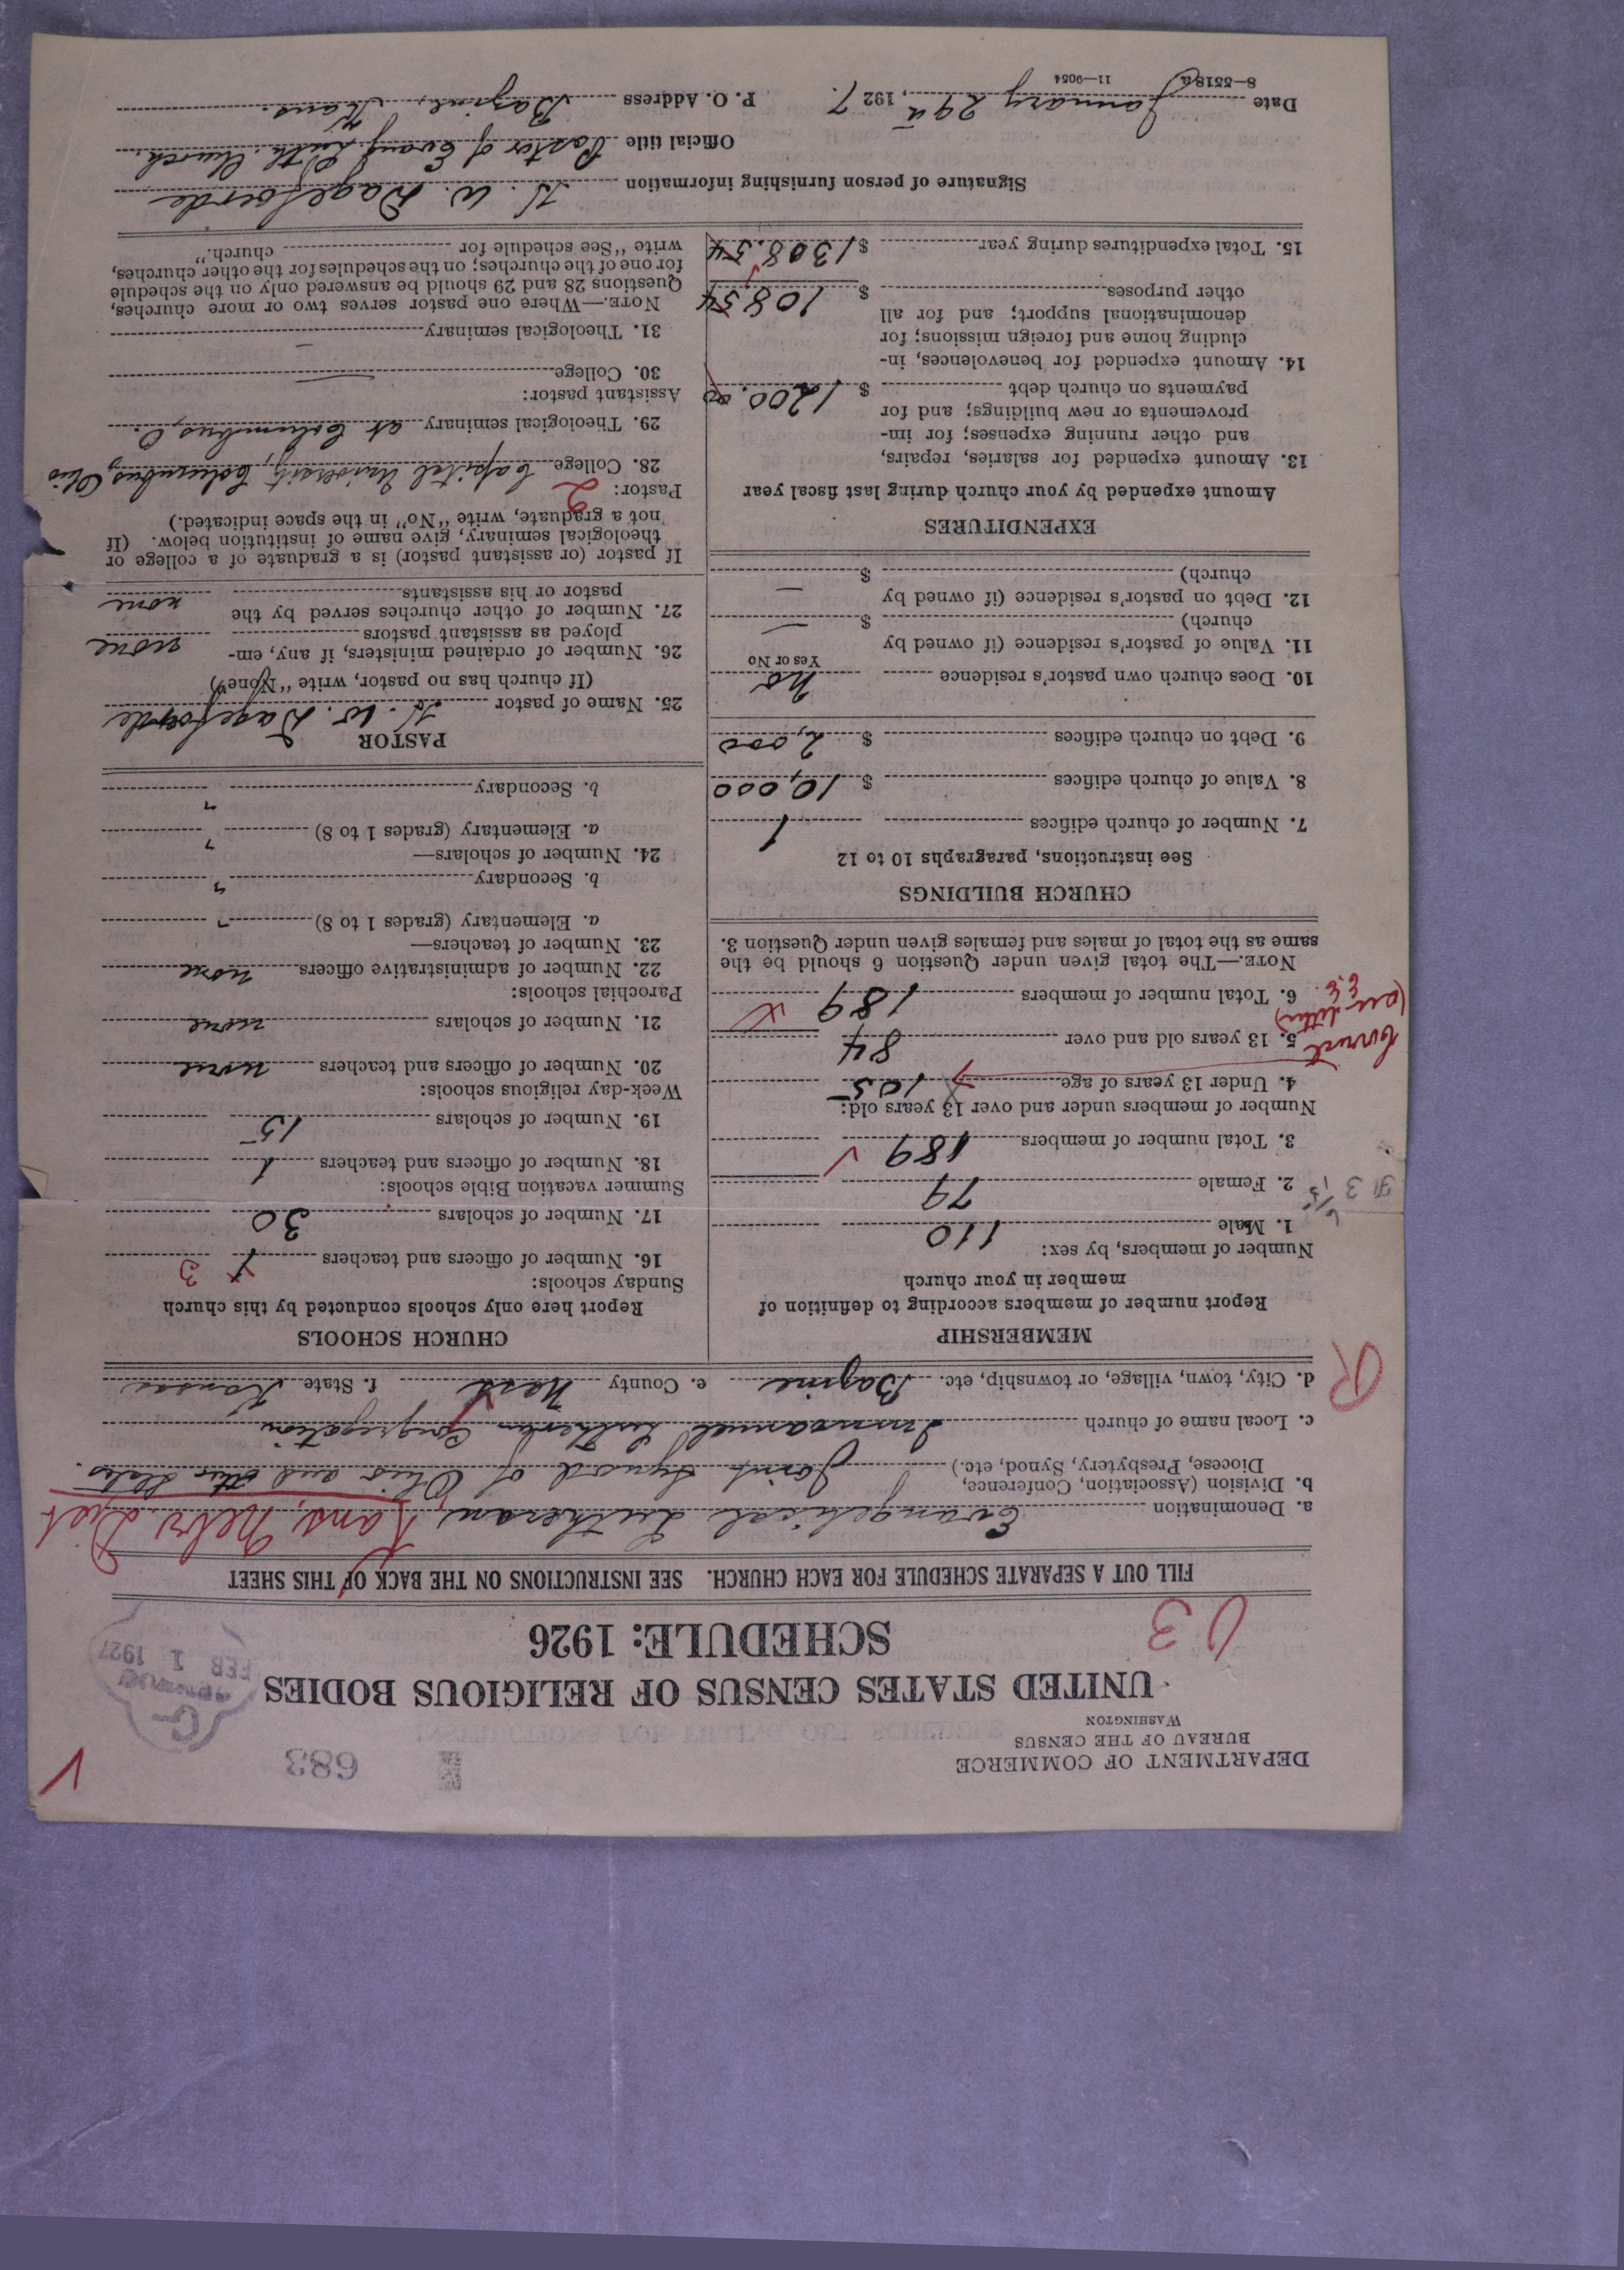 DEPARTMENT OF COMMERCE
BUREAU OF THE CENSUS
WASHINGTON
683
FEB 1 1927
UNITED STATES CENSUS OF RELIGIOUS BODIES
SCHEDULE: 1926
03
FILL OUT A SEPARATE SCHEDULE FOR EACH CHURCH. SEE INSTRUCTIONS ON THE BACK OF THIS SHEET
a. Denomination Evangelical Lutheran, Kans, Nebr. Dist
b. Division (Association, Conference,
Diocese, Presbytery, Synod, etc.) Joint Synod of Ohio and other States.
c. Local name of church Immanuel Lutheran Congregation
d. City, town, village, or township, etc. Bazine e. County Ness f. State Kansas
R
MEMBERSHIP
Report number of members according to definition of
member in your church
Number of members, by sex:
1. Male 110
2. Female 79
3. Total number of members 189
Number of members under and over 13 years old:
4. Under 13 years of age 105
5. 13 years old and over 84
Correct
(per letter)
E.E.
6. Total number of members 189
NOTE.—The total given under Question 6 should be the
same as the total of males and females given under Question 3.
CHURCH BUILDINGS
See instructions, paragraphs 10 to 12
7. Number of church edifices 1
8. Value of church edifices $ 10,000
9. Debt on church edifices $ 2,000
10. Does church own pastor's residence No
Yes or No
11. Value of pastor's residence (if owned by
church) $ —
12. Debt on pastor's residence (if owned by
church) $ —
EXPENDITURES
Amount expended by your church during last fiscal year
13. Amount expended for salaries, repairs,
and other running expenses; for im-
provements or new buildings; and for
payments on church debt $ 1200.00
14. Amount expended for benevolences, in-
cluding home and foreign missions; for
denominational support; and for all
other purposes $ 108 54
15. Total expenditures during year $ 1308.54
CHURCH SCHOOLS
Report here only schools conducted by this church
Sunday schools:
16. Number of officers and teachers 3
17. Number of scholars 30
Summer vacation Bible schools:
18. Number of officers and teachers 1
19. Number of scholars 15
Week-day religious schools:
20. Number of officers and teachers none
21. Number of scholars none
Parochial schools:
22. Number of administrative officers none
23. Number of teachers—
a. Elementary (grades 1 to 8) "
b. Secondary "
24. Number of scholars—
a. Elementary (grades 1 to 8) "
b. Secondary "
PASTOR
25. Name of pastor H. W. Dagefoerde
(If church has no pastor, write "None")
26. Number of ordained ministers, if any, em-
ployed as assistant pastors none
27. Number of other churches served by the
pastor or his assistants none
If pastor (or assistant pastor) is a graduate of a college or
theological seminary, give name of institution below. (If
not a graduate, write "No" in the space indicated.)
Pastor: 2
28. College Capital University, Columbus, Ohio
29. Theological seminary at Columbus, O.
Assistant pastor:
30. College —
31. Theological seminary —
NOTE.—Where one pastor serves two or more churches,
Questions 28 and 29 should be answered only on the schedule
for one of the churches; on the schedules for the other churches,
write "See schedule for church."
Signature of person furnishing information H. W. Dagefoerde
Official title Pastor of Evang. Luth. Church.
Date January 29th, 1927. P. O. Address Bazine, Kans.
8—5518a 11—9054